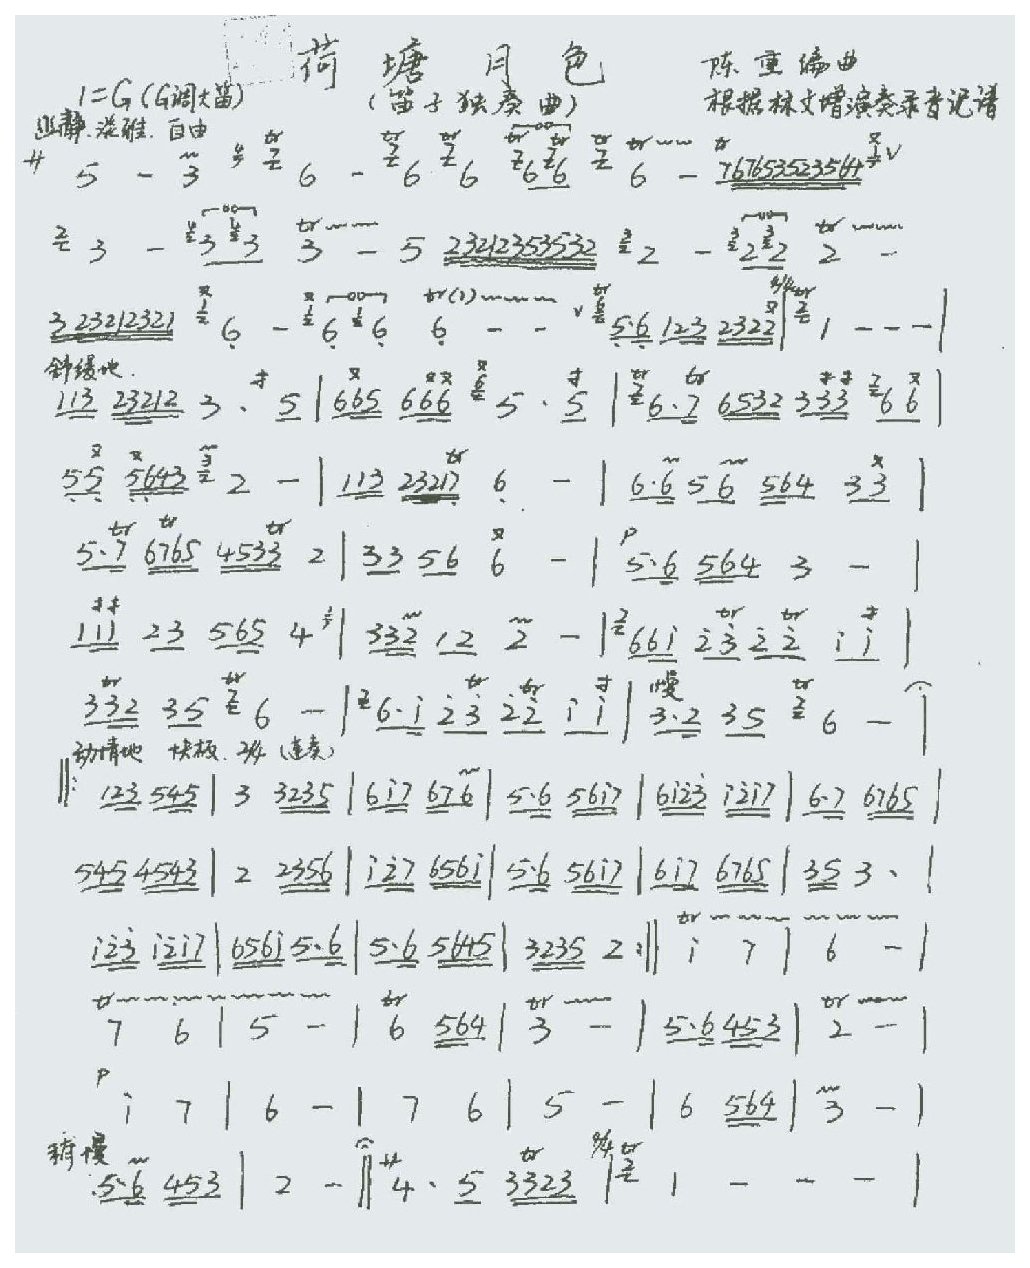 荷塘月色
陈重编曲
1=G (G调大笛)
(笛子独奏曲)
根据林文增演奏录音记谱
幽静.淡雅.自由
5 - 3 6 - 6 6 6 6 6 - 767653523564
3 - 3 3 3 - 5 23212353532 2 - 2 2 2 -
3 23212321 6 - 6 6 6 - - 5·6 123 2322 | 1 - - - |
稍缓地.
113 23212 3 · 5 | 665 666 5 · 5 | 6·7 6532 333 6 6 |
55 5643 2 - | 113 23217 6 - | 6·6 56 564 33 |
5·7 6765 4533 2 | 33 56 6 - | P 5·6 564 3 - |
111 23 565 4 | 332 12 2 - | 661 23 22 11 |
332 35 6 - | 6·1 23 22 11 | 慢 3·2 35 6 - |
动情地 快板. 2/4 (连奏)
‖: 123 545 | 3 3235 | 617 676 | 5·6 5617 | 6123 1217 | 6·7 6765 |
545 4543 | 2 2356 | 127 6561 | 5·6 5617 | 617 6765 | 35 3 · |
123 1217 | 6561 5·6 | 5·6 5645 | 3235 2 :‖ 1 7 | 6 - |
7 6 | 5 - | 6 564 | 3 - | 5·6 453 | 2 - |
P 1 7 | 6 - | 7 6 | 5 - | 6 564 | 3 - |
稍慢
5·6 453 | 2 - ‖ 4 · 5 3323 | 1 - - - |